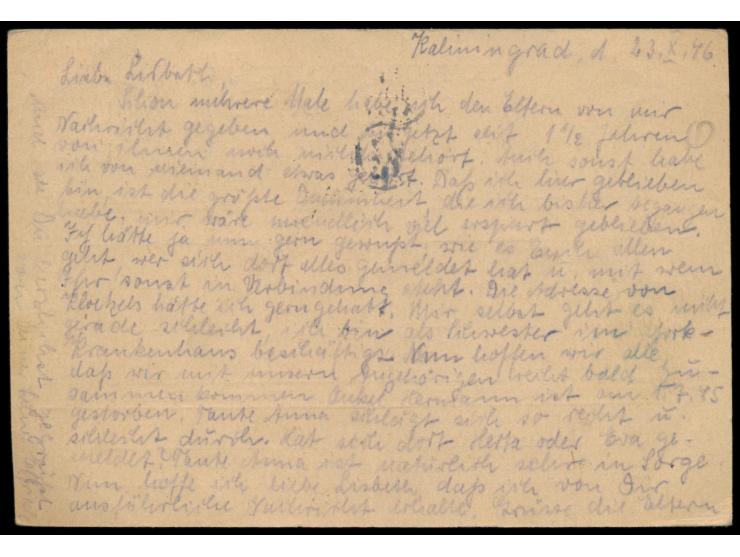 Kaliningrad, d. 23.X.46.
Liebe Lisbeth,
Schon mehrere Male habe ich den Eltern von mir
Nachricht gegeben und jetzt seit 1 1/2 Jahren
von ihnen noch nichts gehört. Auch sonst habe
ich von niemand etwas gehört. Daß ich hier geblieben
bin, ist die größte Dummheit, die ich bisher begangen
habe. mir wäre unendlich viel erspart geblieben.
Ich hätte ja nun gern gewusst, wie es Euch allen
geht wer sich dort alles gemeldet hat u. mit wem
Ihr sonst in Verbindung steht. Die Adresse von
Klockels hätte ich gern gehabt. Mir selbst geht es nicht
gerade schlecht, ich bin als Schwester im York-
Krankenhaus beschäftigt. Nun hoffen wir alle,
daß wir mit unsern Angehörigen recht bald zu-
sammenkommen Onkel Hermann ist am 7.45
gestorben. Tante Anna schlägt sich so recht u.
schlecht durch. Hat sich dort Herta oder Eva ge-
meldet? Tante Anna ist natürlich sehr in Sorge
Nun hoffe ich liebe Lisbeth, daß ich von Dir
ausführliche Nachricht erhalte. Grüsse die Eltern
und sei Du herzlichst gegrüßt
von